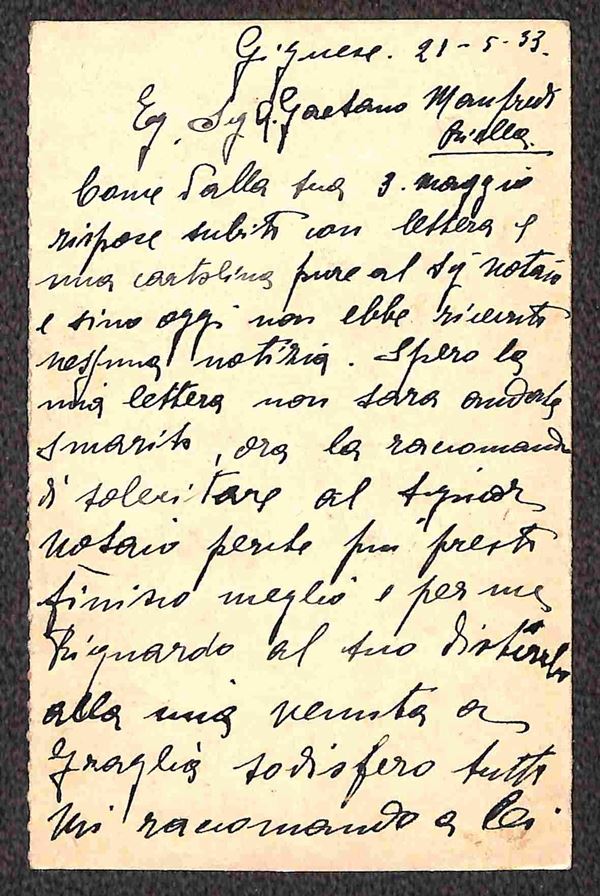 Gignese. 21-5-33.
Eg. Sig. Gaetano Manfredi
Biella.
Come dalla sua 3. maggio
rispose subito con lettera e
una cartolina pure al Sig notaio
e sino oggi non ebbe ricevuto
nessuna notizia. Spero la
mia lettera non sara andata
smarito, ora la racomando
di solecitare al signor
notaio perche piu presto
finisco meglio e per me
Riguardo al suo disturbo
alla mia venuta a
Graglia sodisfero tutto
Mi racomando a Lei